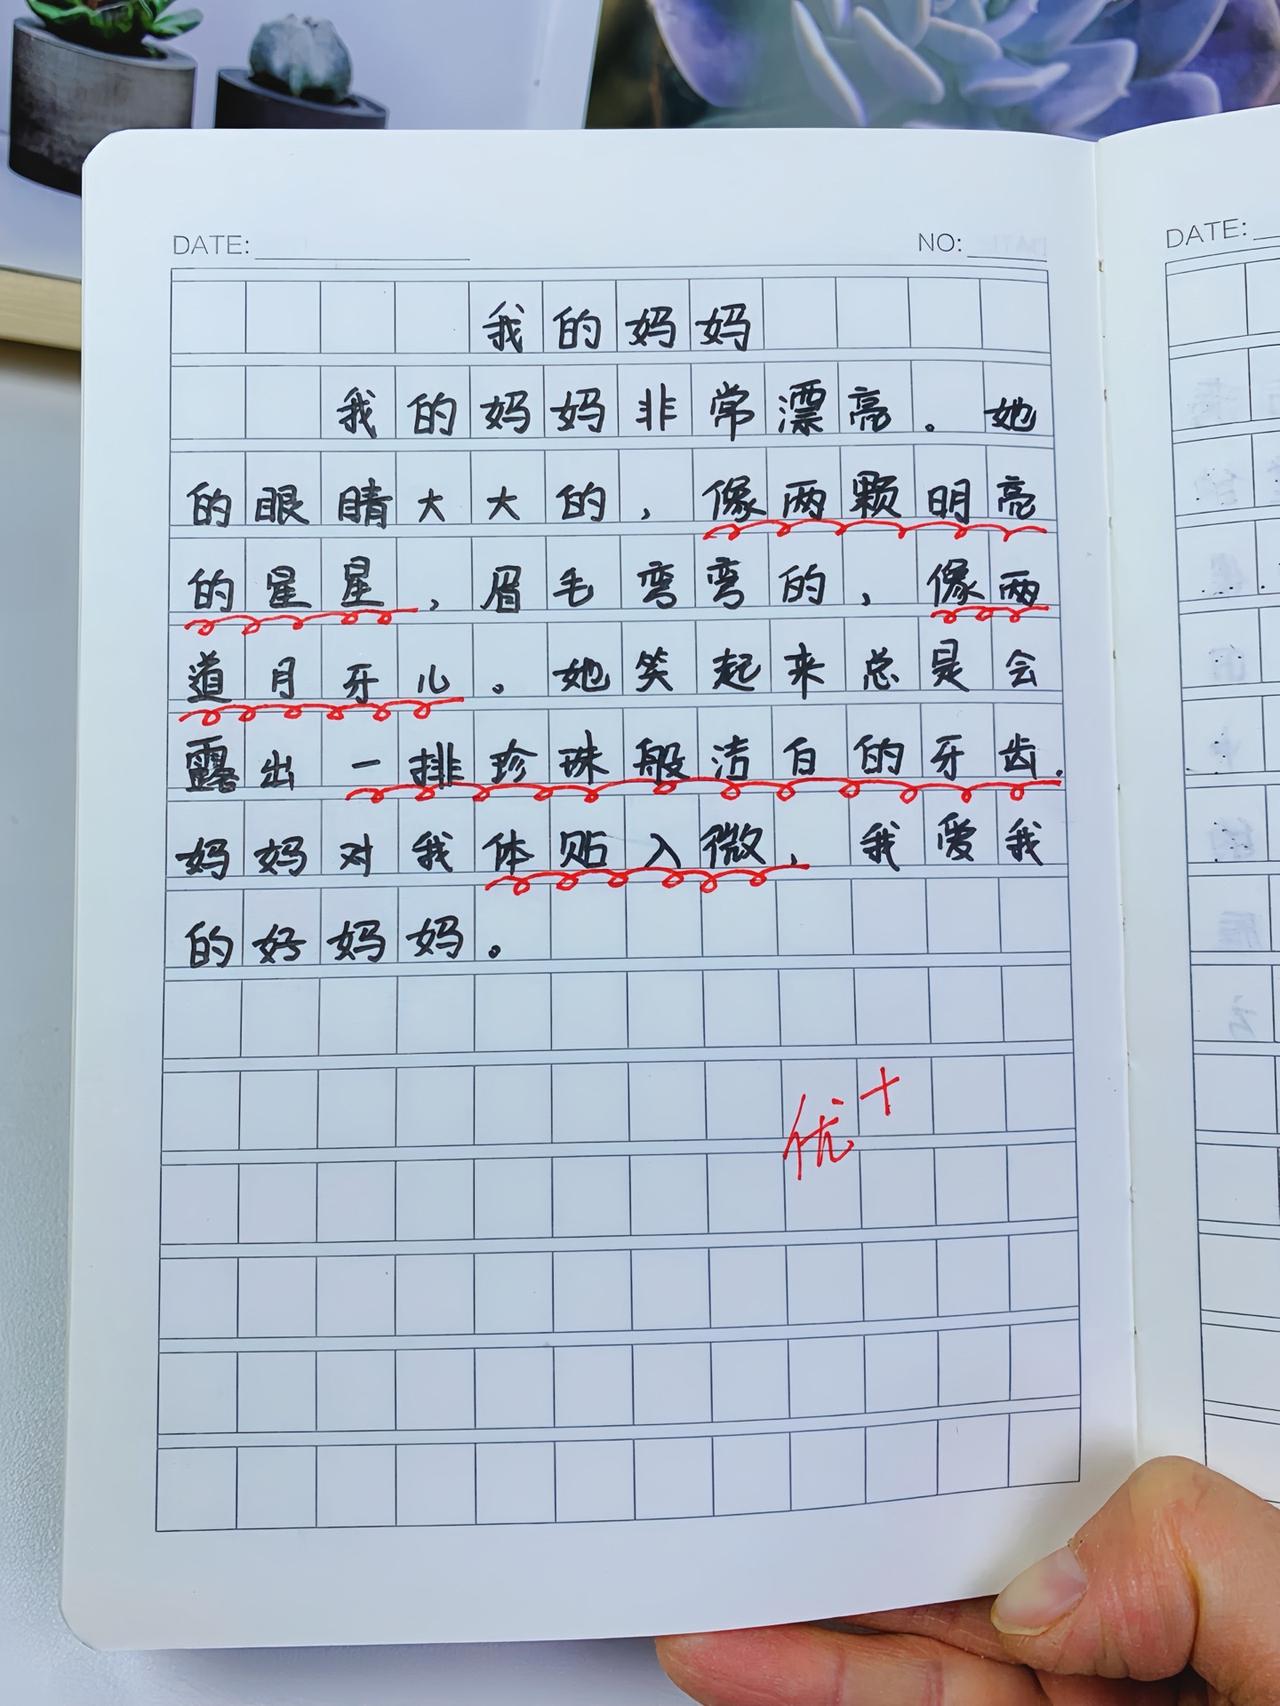 DATE:
NO:
DATE:
我的妈妈
我的妈妈非常漂亮。她
的眼睛大大的，像两颗明亮
的星星，眉毛弯弯的，像两
道月牙儿。她笑起来总是会
露出一排珍珠般洁白的牙齿.
妈妈对我体贴入微，我爱我
的好妈妈。
优+